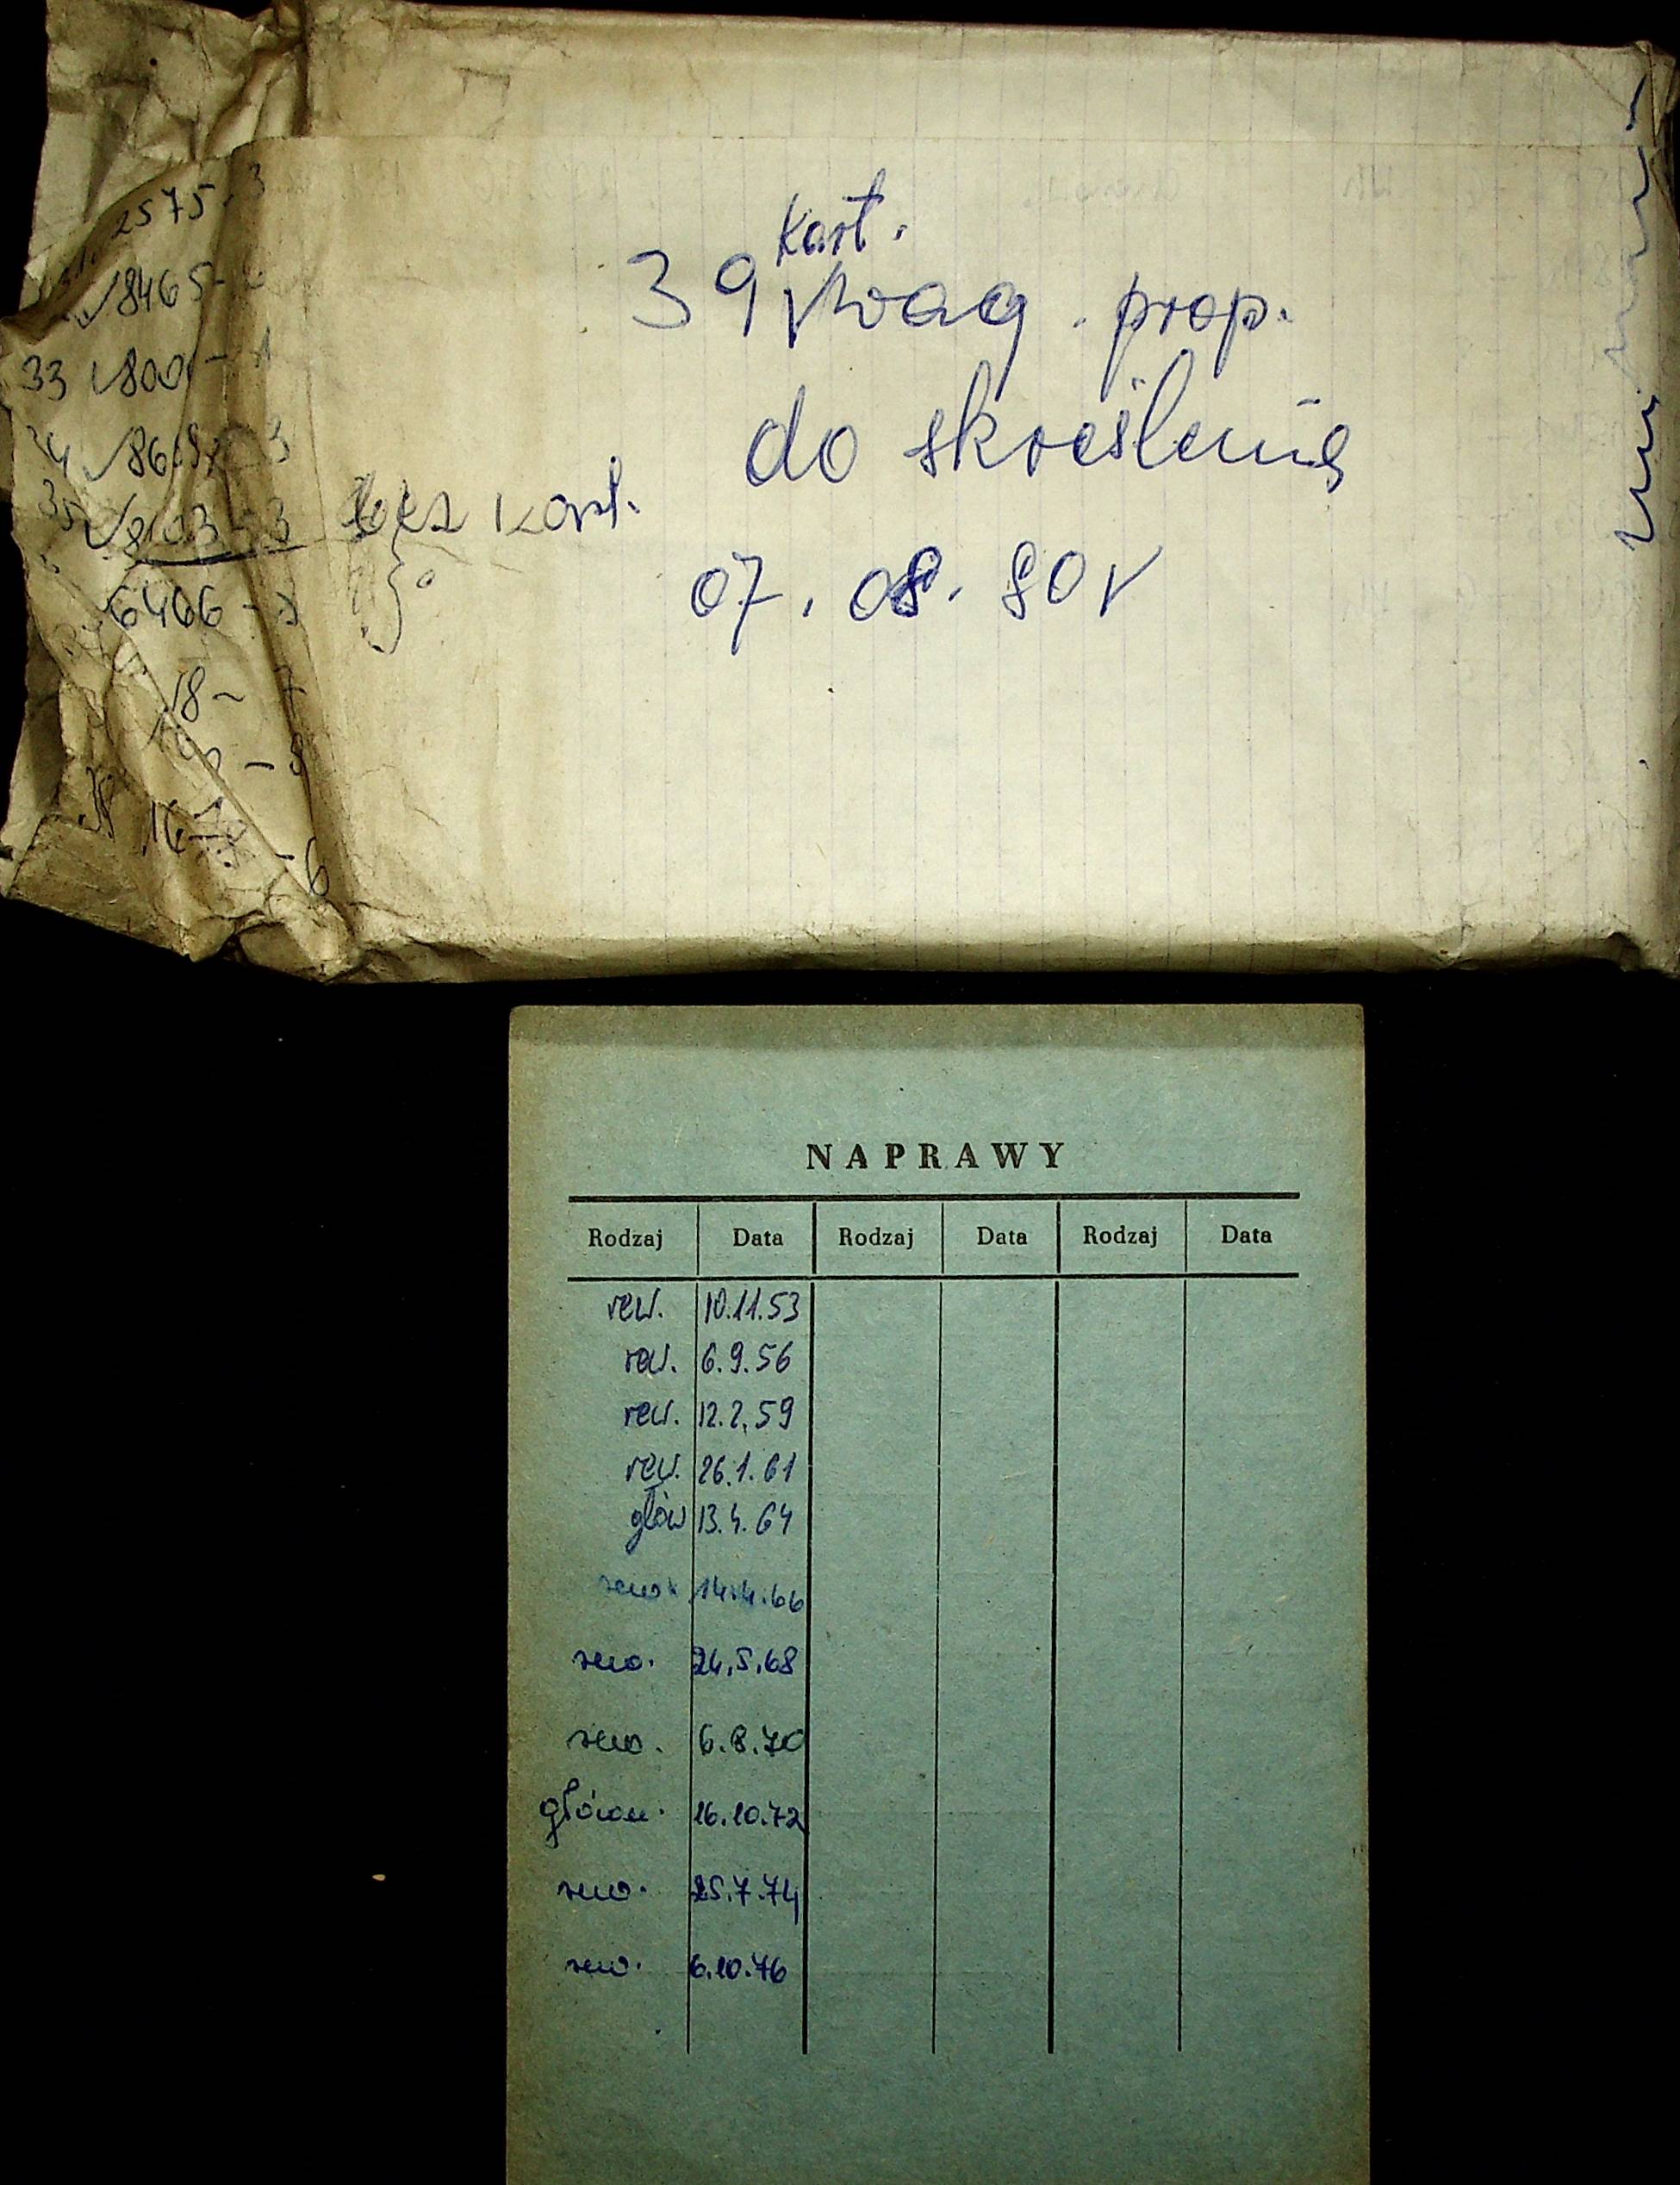 2575-3
8465-
33 800 - 1
34 86 - 3
35 8103-3 bez kart.
6466 -
18-
16
- 6
kart.
39 wag. prop.
do skreślenia
07.08.80r
NAPRAWY
Rodzaj Data Rodzaj Data Rodzaj Data
rew. 10.11.53
rew. 6.9.56
rew. 12.2.59
rew. 26.1.61
głów 13.4.64
rew. 14.4.66
rew. 24.5.68
rew. 6.8.70
główn. 16.10.72
rew. 25.7.74
rew. 6.10.76